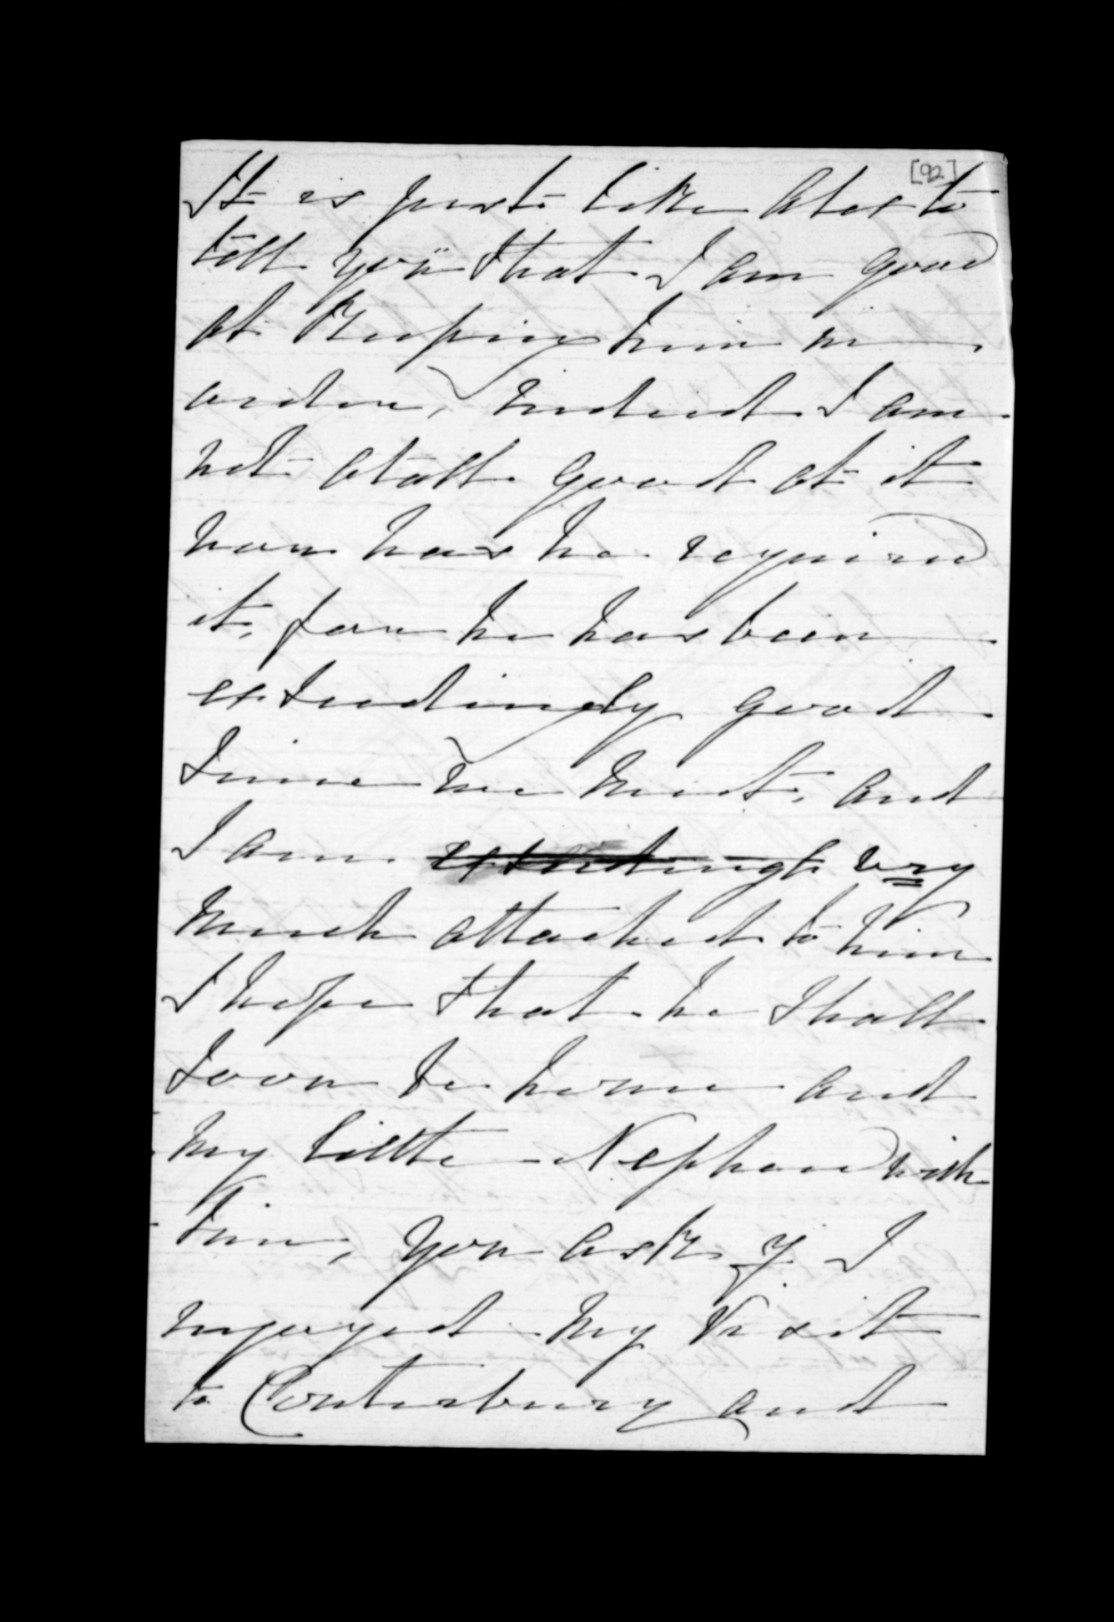 [92]
It is just like Alex to
tell you that I am good
at Keeping him in
order, indeed I am
not atall good at it
nor has he required
it, for he has been
exceedingly good
since we met, and
I am exceedingly very
much attached to him
I hope that he shall
soon be home and
my little Nephew with
him, you ask if I
injoyed my Visit
to Canterbury and